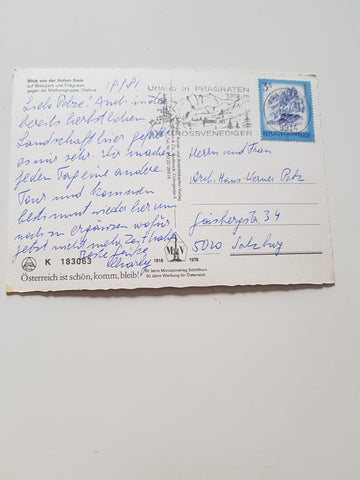 Blick von der Hohen Bank
auf Bobojach und Prägraten
gegen die Malhamgruppe, Osttirol
17.9.81
Liebe Potze! Auch in der
bereits herbstlichen
Landschaft hier gefällt
es mir sehr. Wir machen
jeden Tag eine andere
Tour und kommen
bestimmt wieder hier um
noch zu ergänzen wofür
jetzt nicht mehr Zeit habe
Beste Grüße
K 183063
Österreich ist schön, komm, bleib!
Urlaub in PRÄGRATEN
1312 m
GROSSVENEDIGER
3 S
REPUBLIK ÖSTERREICH
Herrn und Frau
Arch. Hans Werner Potz
Gaisbergstr. 34
5020 Salzburg
1918
1978
60 Jahre Monopolverlag Schöllhorn
60 Jahre Werbung für Österreich